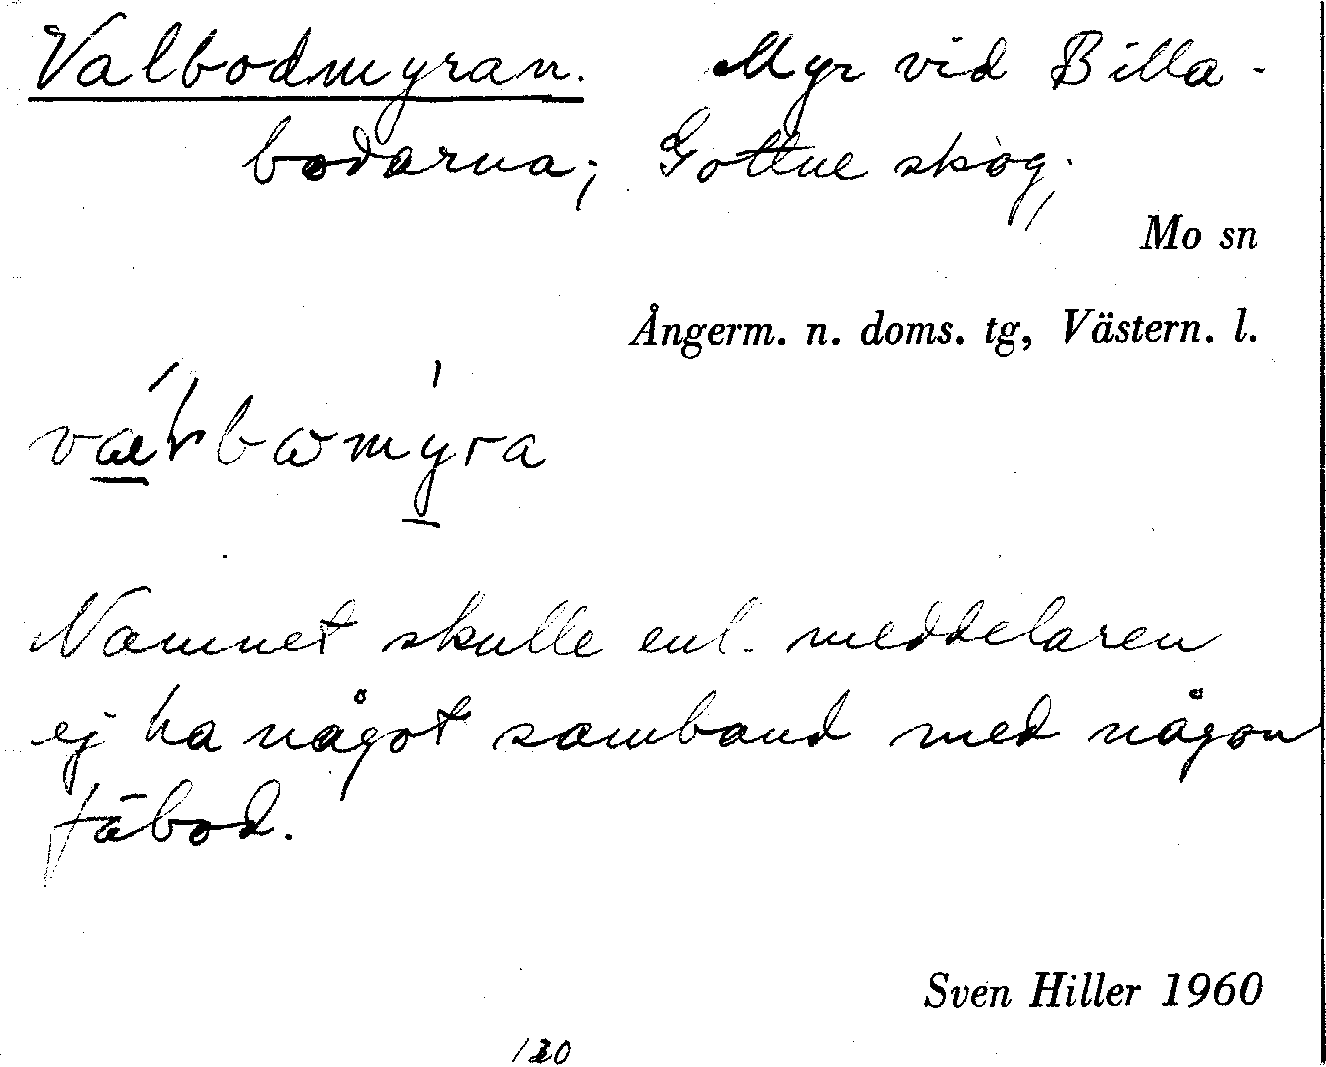 Valbodmyran. Myr vid Billa-
bodarna; Gottne skog;
Mo sn
Ångerm. n. doms. tg, Västern. l.
Namnet skulle enl. meddelaren
ej ha något samband med någon
fäbod.
Sven Hiller 1960
120